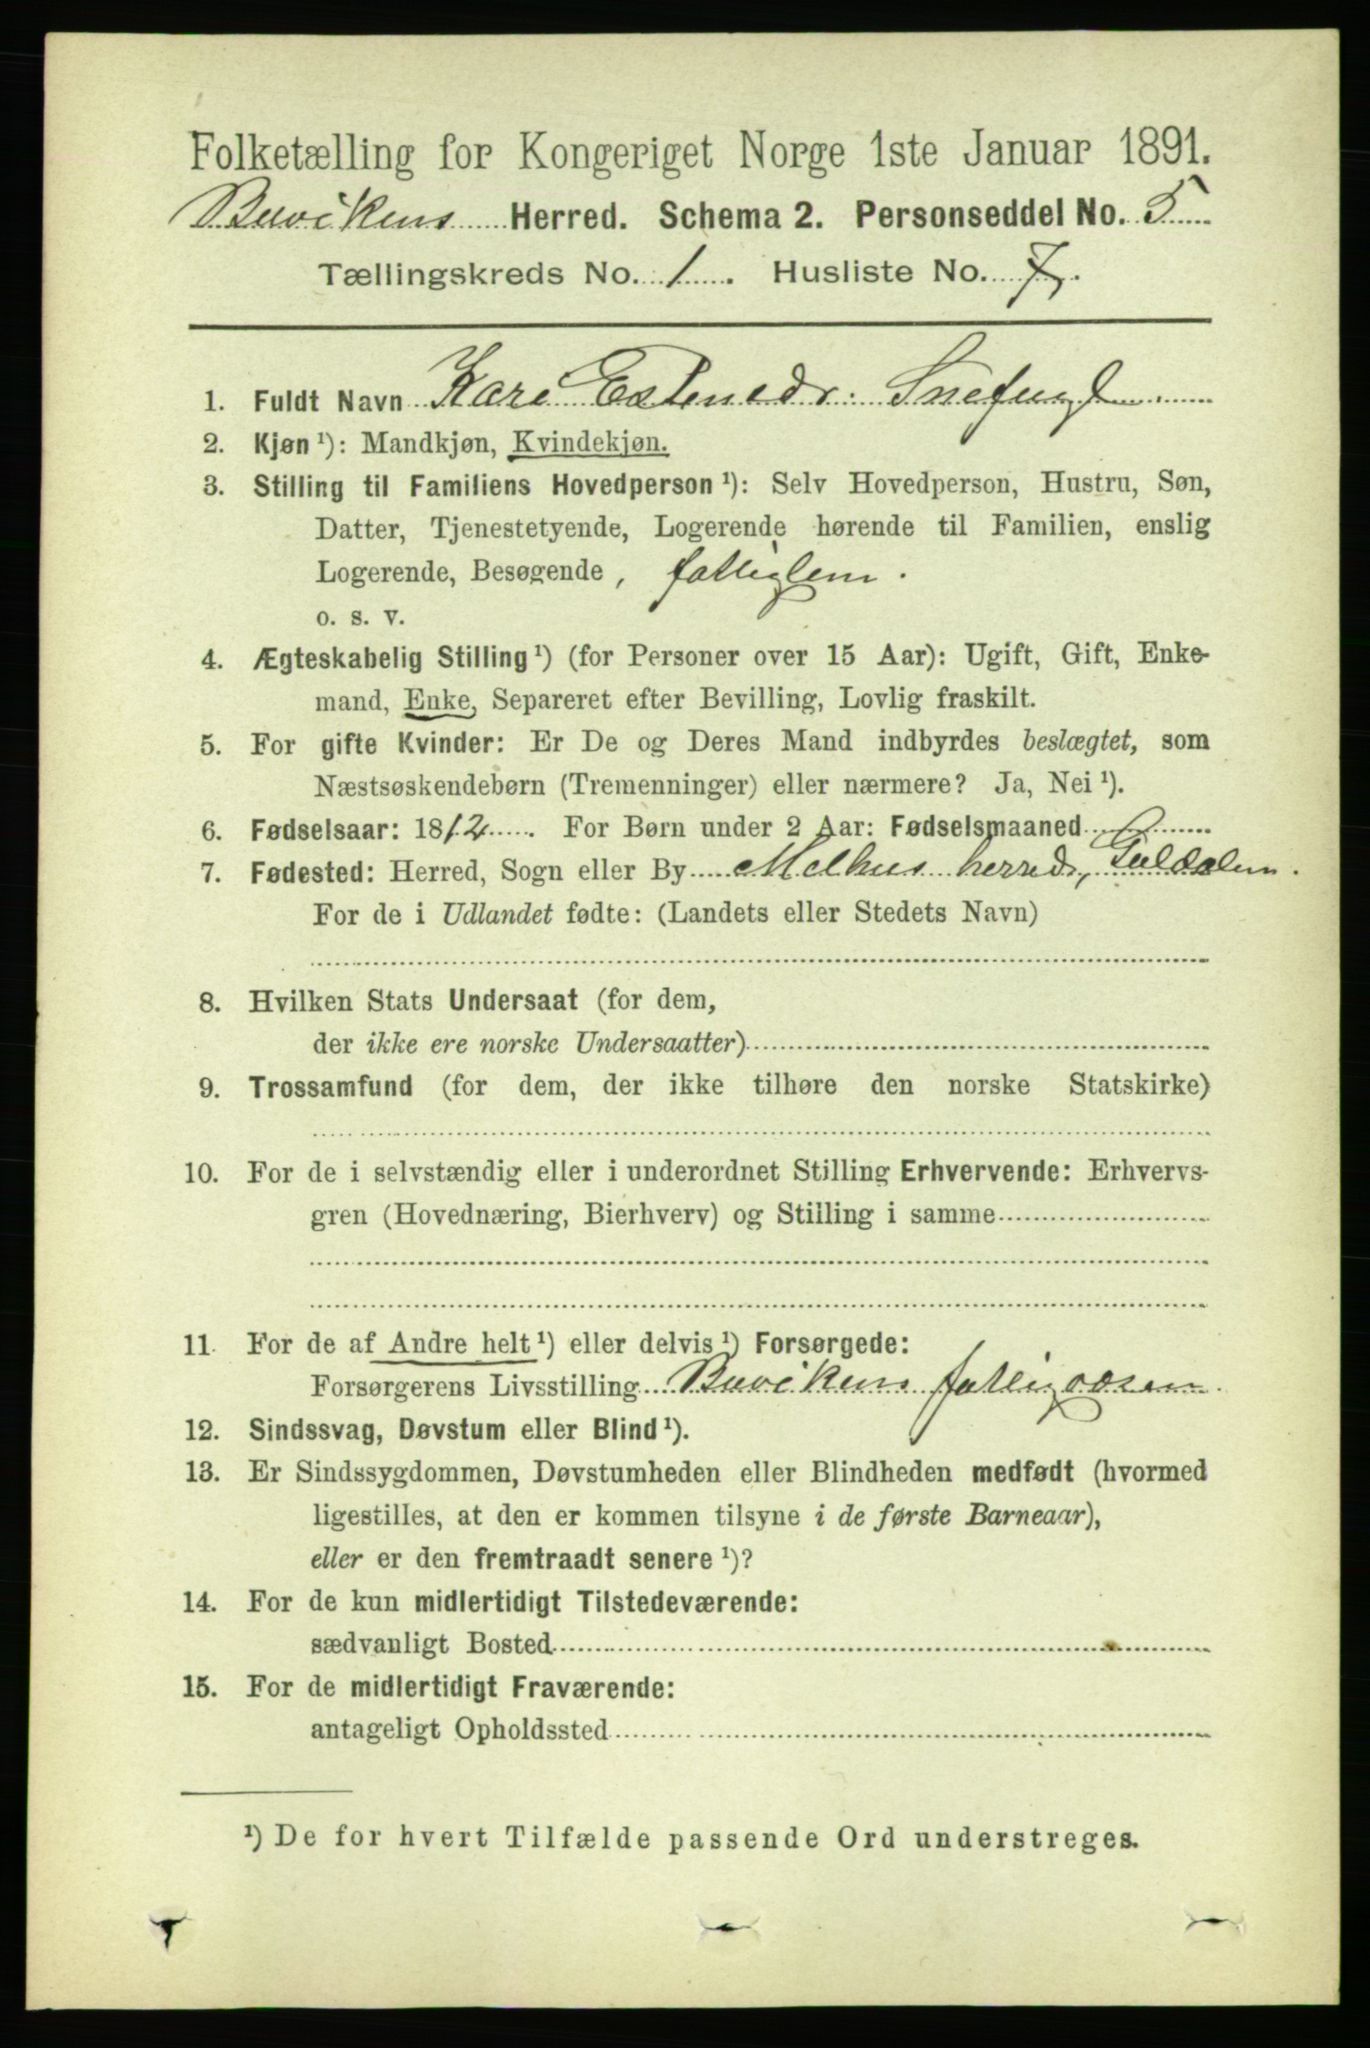 Folketælling for Kongeriget Norge 1ste Januar 1891.
Buvikens Herred. Schema 2. Personseddel No. 5
Tællingskreds No. 1. Husliste No. 7.
1. Fuldt Navn Kari Estensdr. Snefugl
2. Kjøn ¹): Mandkjøn, Kvindekjøn.
3. Stilling til Familiens Hovedperson ¹): Selv Hovedperson, Hustru, Søn,
Datter, Tjenestetyende, Logerende hørende til Familien, enslig
Logerende, Besøgende, fattiglem.
o. s. v.
4. Ægteskabelig Stilling ¹) (for Personer over 15 Aar): Ugift, Gift, Enke-
mand, Enke, Separeret efter Bevilling, Lovlig fraskilt.
5. For gifte Kvinder: Er De og Deres Mand indbyrdes beslægtet, som
Næstsøskendebørn (Tremenninger) eller nærmere? Ja, Nei ¹).
6. Fødselsaar: 1812. For Børn under 2 Aar: Fødselsmaaned
7. Fødested: Herred, Sogn eller By Melhus herred, Guldalen.
For de i Udlandet fødte: (Landets eller Stedets Navn)
8. Hvilken Stats Undersaat (for dem,
der ikke ere norske Undersaatter)
9. Trossamfund (for dem, der ikke tilhøre den norske Statskirke)
10. For de i selvstændig eller i underordnet Stilling Erhvervende: Erhvervs-
gren (Hovednæring, Bierhverv) og Stilling i samme
11. For de af Andre helt ¹) eller delvis ¹) Forsørgede:
Forsørgerens Livsstilling Buvikens fattigvæsen.
12. Sindssvag, Døvstum eller Blind ¹).
13. Er Sindssygdommen, Døvstumheden eller Blindheden medfødt (hvormed
ligestilles, at den er kommen tilsyne i de første Barneaar),
eller er den fremtraadt senere ¹)?
14. For de kun midlertidigt Tilstedeværende:
sædvanligt Bosted
15. For de midlertidigt Fraværende:
antageligt Opholdssted
¹) De for hvert Tilfælde passende Ord understreges.